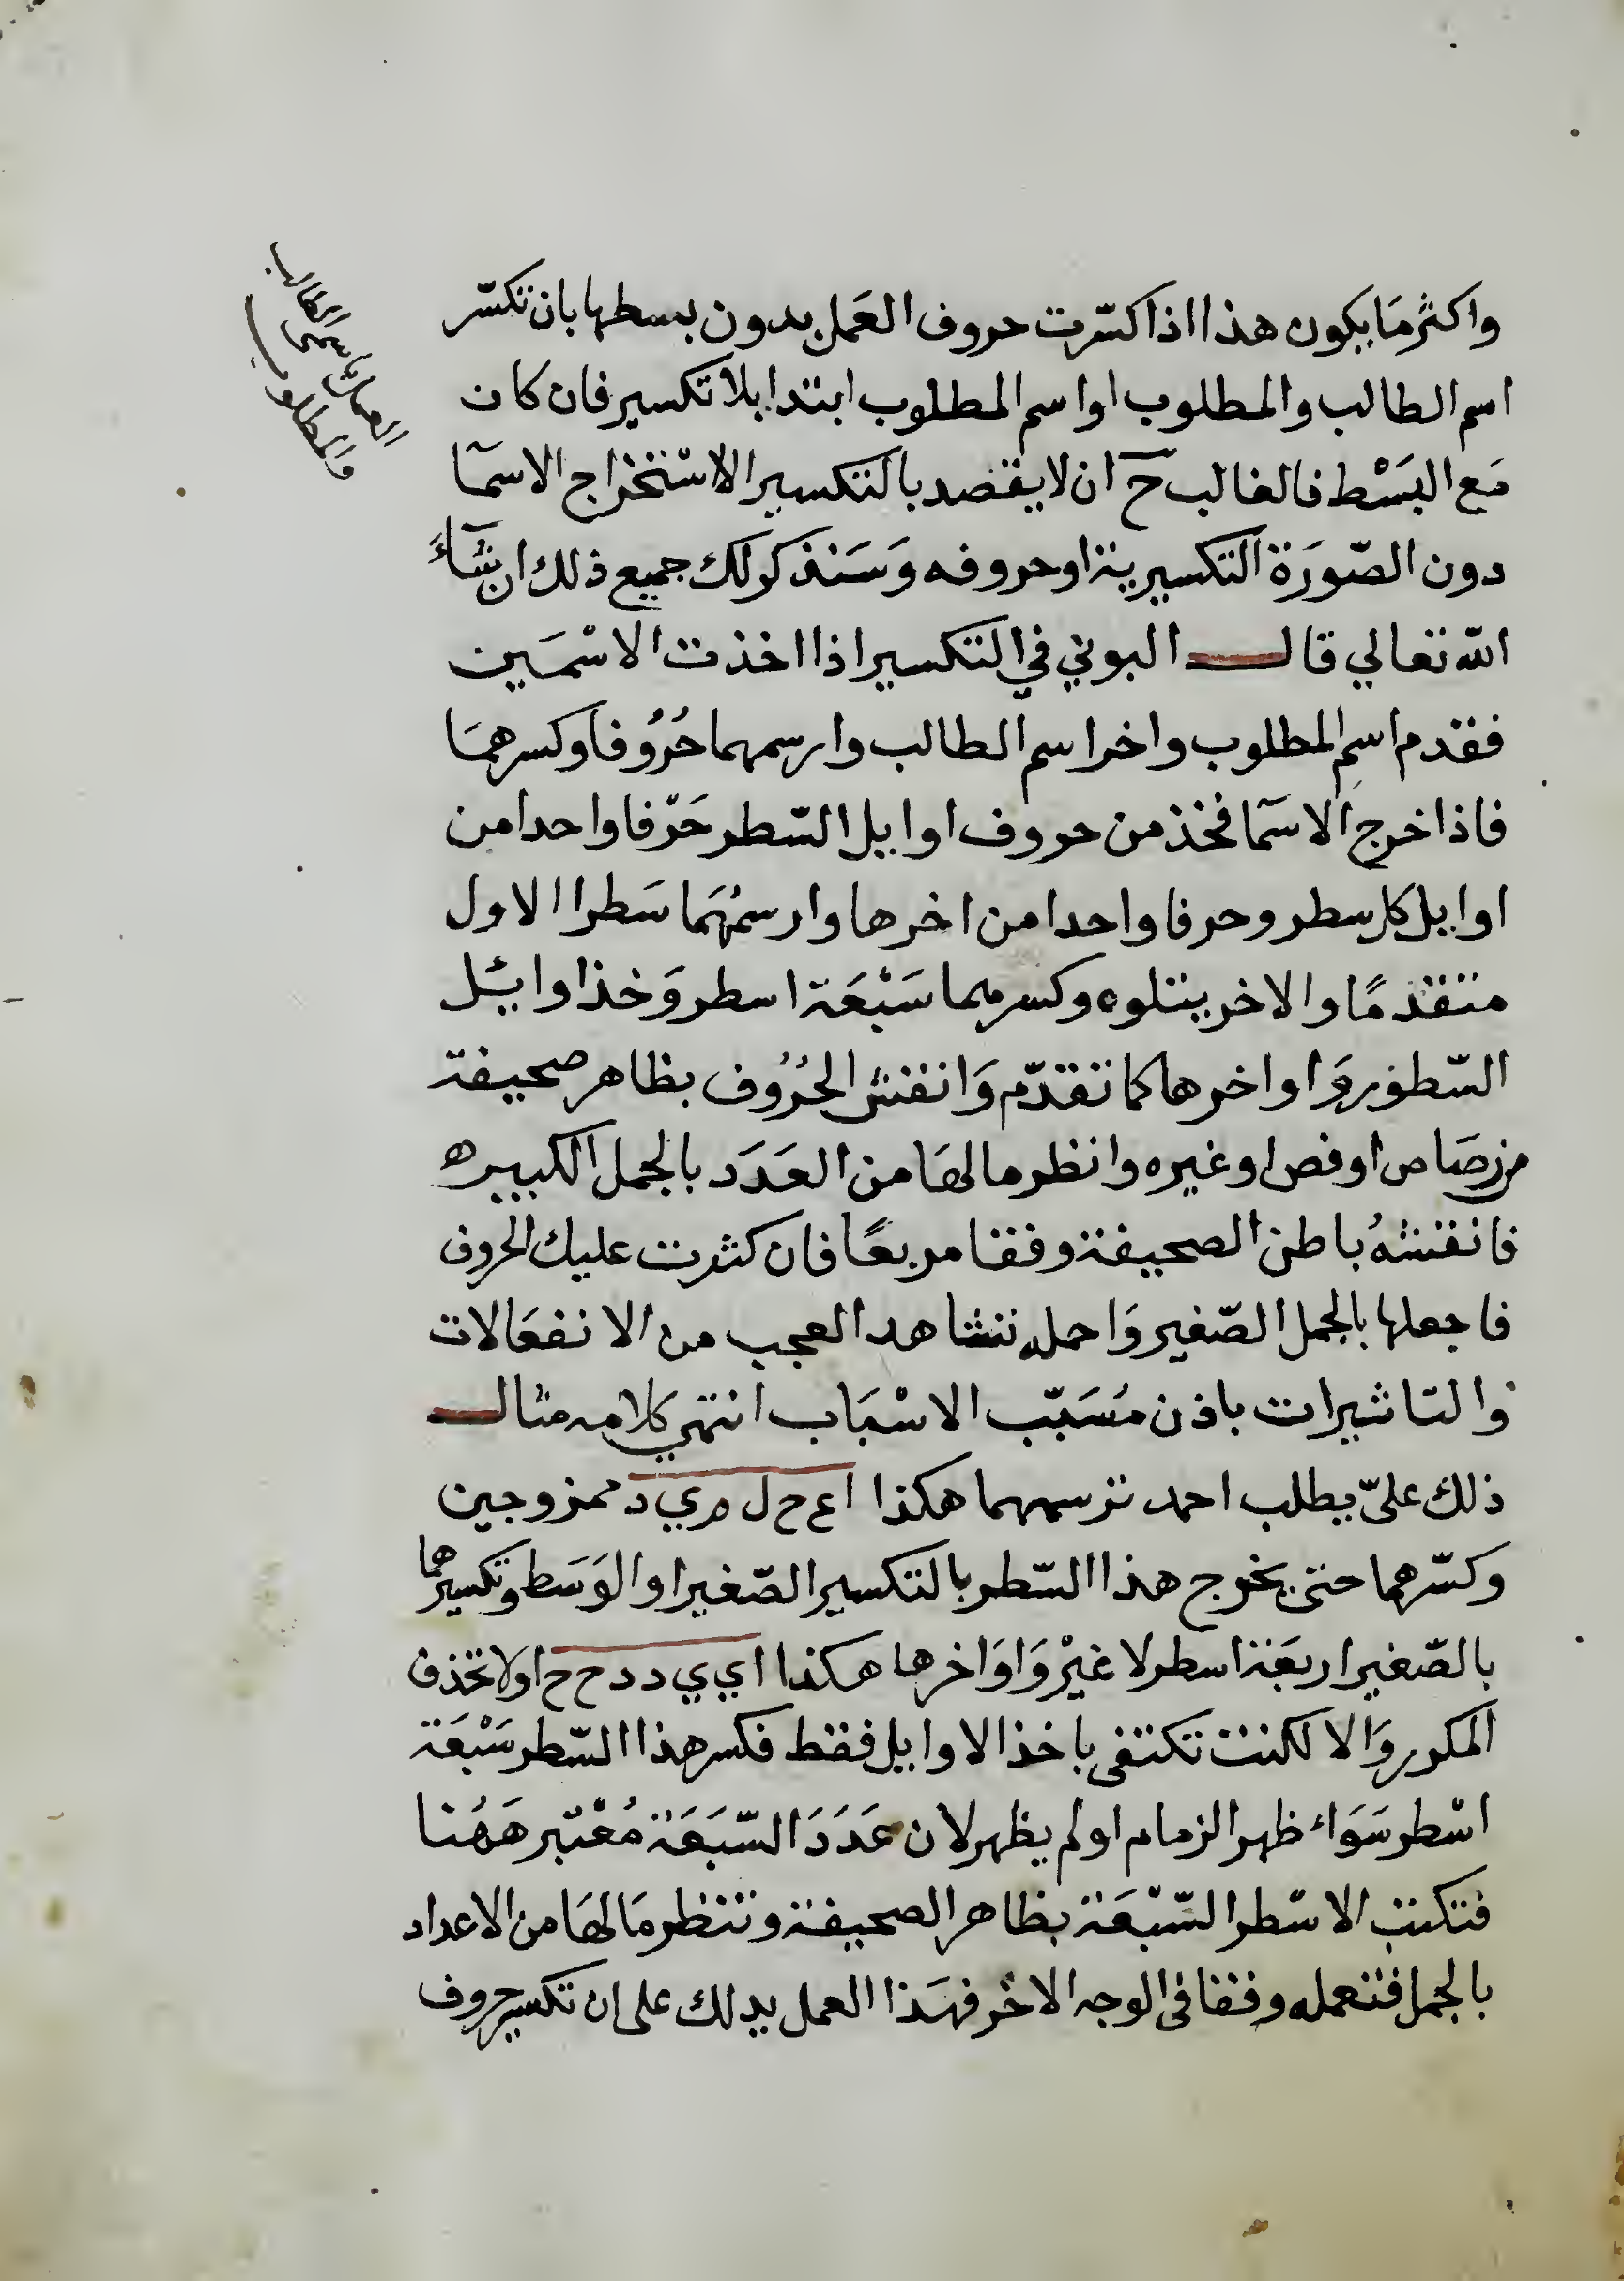 واكثر مَا يكون هذا اذا كسّرت حروف العَمل بدون بسطها بان تكسّر
اسم الطالب والمطلوب او اسم المطلوب ابتدا بلا تكسير فان كان
مَع البَسْط فالغالب حَ ان لا يقصد بالتكسير الا اسْتخراج الاسمآ
دون الصّورَة التكسيرية او حروفه وَسَنذكر لك جميع ذلك ان شآءَ
الله تعالي قال البوني في التكسير اذا اخذت الاسْمَين
فقدم اسم المطلوب واخر اسم الطالب وارسمهما حُرُوفا وكسرهمَا
فاذا خرج الاسمَآ فخذ من حروف اوايل السّطر حَرْفا واحدا من
اوايل كل سطر وحرفا واحدا من اخرها وارسمُهَما سَطرا الاول
متقدمًا والاخر يتلوه وكسرهما سَبْعَة اسطر وَخذ اوائل
السّطور وَاواخرها كما تقدّم وَانقش الحُرُوف بظاهر صحيفة
من رصَاص او فص او غيره وانظر ما لهَا من العَدَد بالجمل الكبير ه
فانقشهُ باطن الصحيفة وفقا مربعًا فان كثرت عليك الحروف
فاجعلها بالجمل الصّغير وَاحمله تشاهد العجب من الانفعَالات
وَالتاثيرات باذن مُسَبّب الاسْبَاب انتهي كلامه مثال
ذلك عليّ يطلب احمد ترسمهما هكذا ا ع ح ل م ي د ممزوجين
وكسّرهما حتى يخرج هذا السّطر بالتكسير الصّغير او الوَسَط وتكسيرهما
بالصّغير اربعَة اسطر لا غيْر وَاوَاخرها هكذا ا ي ي د د ح ح ا ولا تحذف
المكرر وَالا لكنت تكتفي باخذ الاوايل فقط فكسر هذا السّطر سَبْعَة
اسْطر سَوَاء ظهر الزمام او لم يظهر لان عَدَدَ السّبَعَة مُعْتبر هَهُنا
فتكتب الاسْطر السّبْعَة بظاهر الصحيفة وتنظر مَا لهَا من الاعداد
بالجمل فتعمله وفقا في الوجه الاخر فهَذا العمل يدلك على ان تكسير حروف
العمل
الطالب
والمطلوب